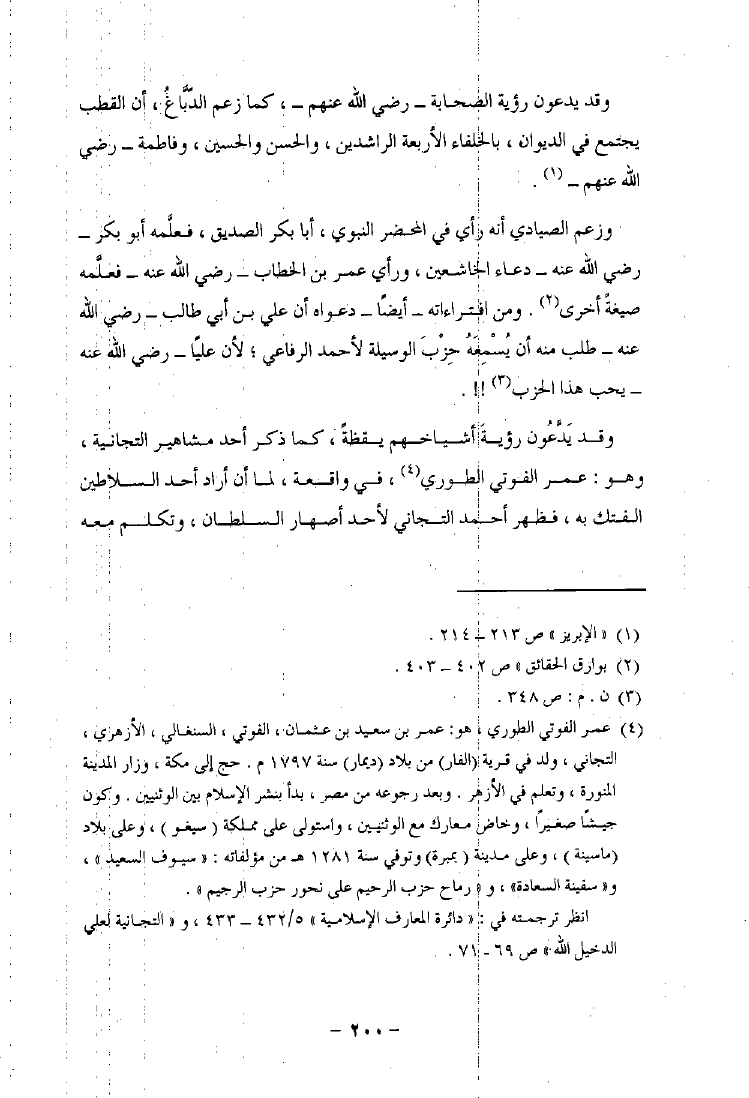 وقد يدعون رؤية الصحابة ــ رضي الله عنهم ــ ، كما زعم الدَّبَّاغُ ، أن القطب
يجتمع في الديوان ، بالخلفاء الأربعة الراشدين ، والحسن والحسين ، وفاطمة ــ رضي
الله عنهم ــ (١) .
وزعم الصيادي أنه رأي في المحضر النبوي ، أبا بكر الصديق ، فعلَّمه أبو بكر ــ
رضي الله عنه ــ دعاء الخاشعين ، ورأي عمر بن الخطاب ــ رضي الله عنه ــ فعلَّمه
صيغةً أخرى(٢) . ومن افتراءاته ــ أيضًا ــ دعواه أن علي بن أبي طالب ــ رضي الله
عنه ــ طلب منه أن يُسْمِعَهُ حِزْبَ الوسيلة لأحمد الرفاعي ؛ لأن عليًا ــ رضي الله عنه
ــ يحب هذا الحزب(٣) !! .
وقد يَدَّعُون رؤيةَ أشياخهم يقظةً ، كما ذكر أحد مشاهير التجانية ،
وهو : عمر الفوتي الطوري(٤) ، في واقعة ، لما أن أراد أحد السلاطين
الفتك به ، فظهر أحمد التجاني لأحد أصهار السلطان ، وتكلم معه
(١) « الإبريز » ص ٢١٣ ــ ٢١٤ .
(٢) بوارق الحقائق » ص ٤٠٢ ــ ٤٠٣ .
(٣) ن . م : ص ٣٤٨ .
(٤) عمر الفوتي الطوري ، هو: عمر بن سعيد بن عثمان ، الفوتي ، السنغالي ، الأزهري ،
التجاني ، ولد في قرية (الفار) من بلاد (ديمار) سنة ١٧٩٧ م . حج إلى مكة ، وزار المدينة
المنورة ، وتعلم في الأزهر . وبعد رجوعه من مصر ، بدأ بنشر الإسلام بين الوثنيين . وكون
جيشًا صغيرًا ، وخاض معارك مع الوثنيين ، واستولى على مملكة ( سيغو ) ، وعلى بلاد
(ماسينة ) ، وعلى مدينة ( بمبرة) وتوفي سنة ١٢٨١ هـ من مؤلفاته : « سيوف السعيد » ،
و« سفينة السعادة» ، و « رماح حزب الرحيم على نحور حزب الرجيم » .
انظر ترجمته في : « دائرة المعارف الإسلامية » ٤٣٢/٥ ــ ٤٣٣ ، و « التجانية لعلي
الدخيل الله » ص ٦٩ - ٧١ .
– ٢٠٠ –